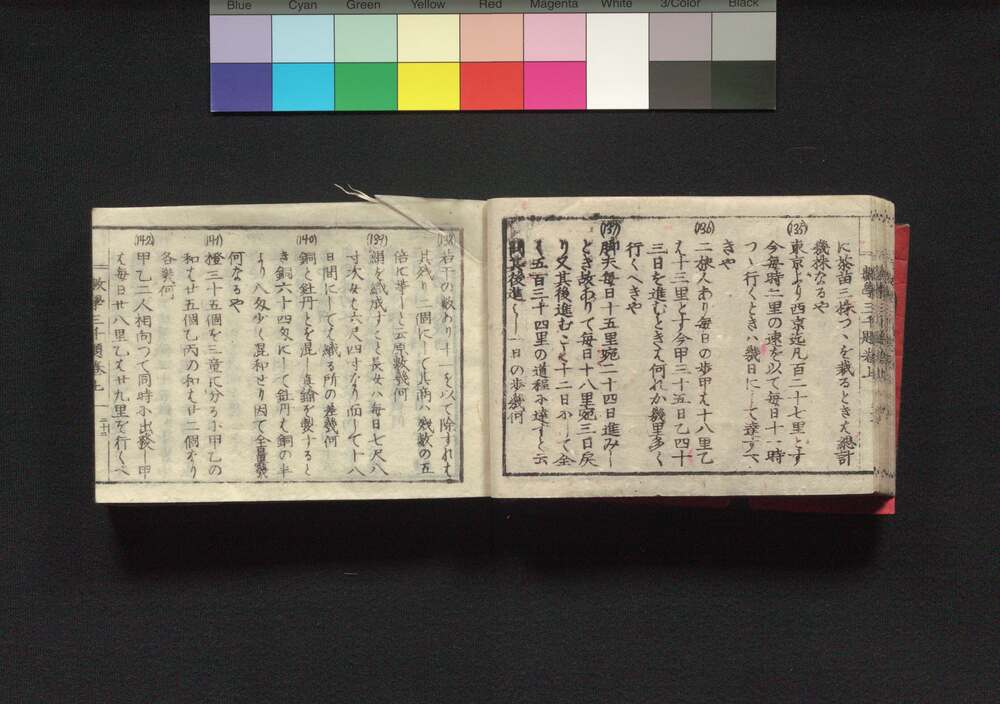 Blue Cyan Green Yellow Red Magenta White 3/Color Black
に茶苗三株つゝを栽るときえ総計
幾株なるや
(135)
東京より西京迄凡百二十七里とす
今毎時二里の速を以て毎日十一時
つゝ行くときハ幾日にして達すへ
きや
(136)
二旅人あり毎日の歩甲え十八里乙
え十三里とす今甲三十五日乙四十
三日を進むときえ何れか幾里多く
行くへきや
(137)
脚夫毎日十五里宛二十四日進みし
とき故ありて毎日十八里宛三日戻
り又其後進むこと十二日にして全
く五百三十四里の道程に達すと云
問其後進し一日の歩幾何
(138)
若干の数あり十一を以て除すれえ
其残り二個にして其商ハ残数の五
倍に等しと云原数幾何
(139)
絹を織成すこと長女ハ毎日七尺八
寸次女え六尺四寸なり而して十八
日間にしてえ織る所の差幾何
(140)
銅と牡丹とを混し真鍮を製すると
き銅六十四匁にして牡丹え銅の半
より八匁少し混和せり因て全量幾
何なるや
(141)
橙三十五個を三童に分るに甲乙の
和え廿五個乙丙の和え廿二個なり
各幾何
(142)
甲乙二人相向つて同時に出発し甲
え毎日廿八里乙え廿九里を行くへ
数学三千題巻上